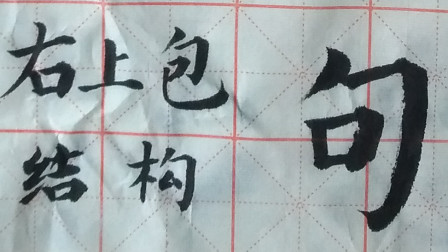 右上包
结构
句